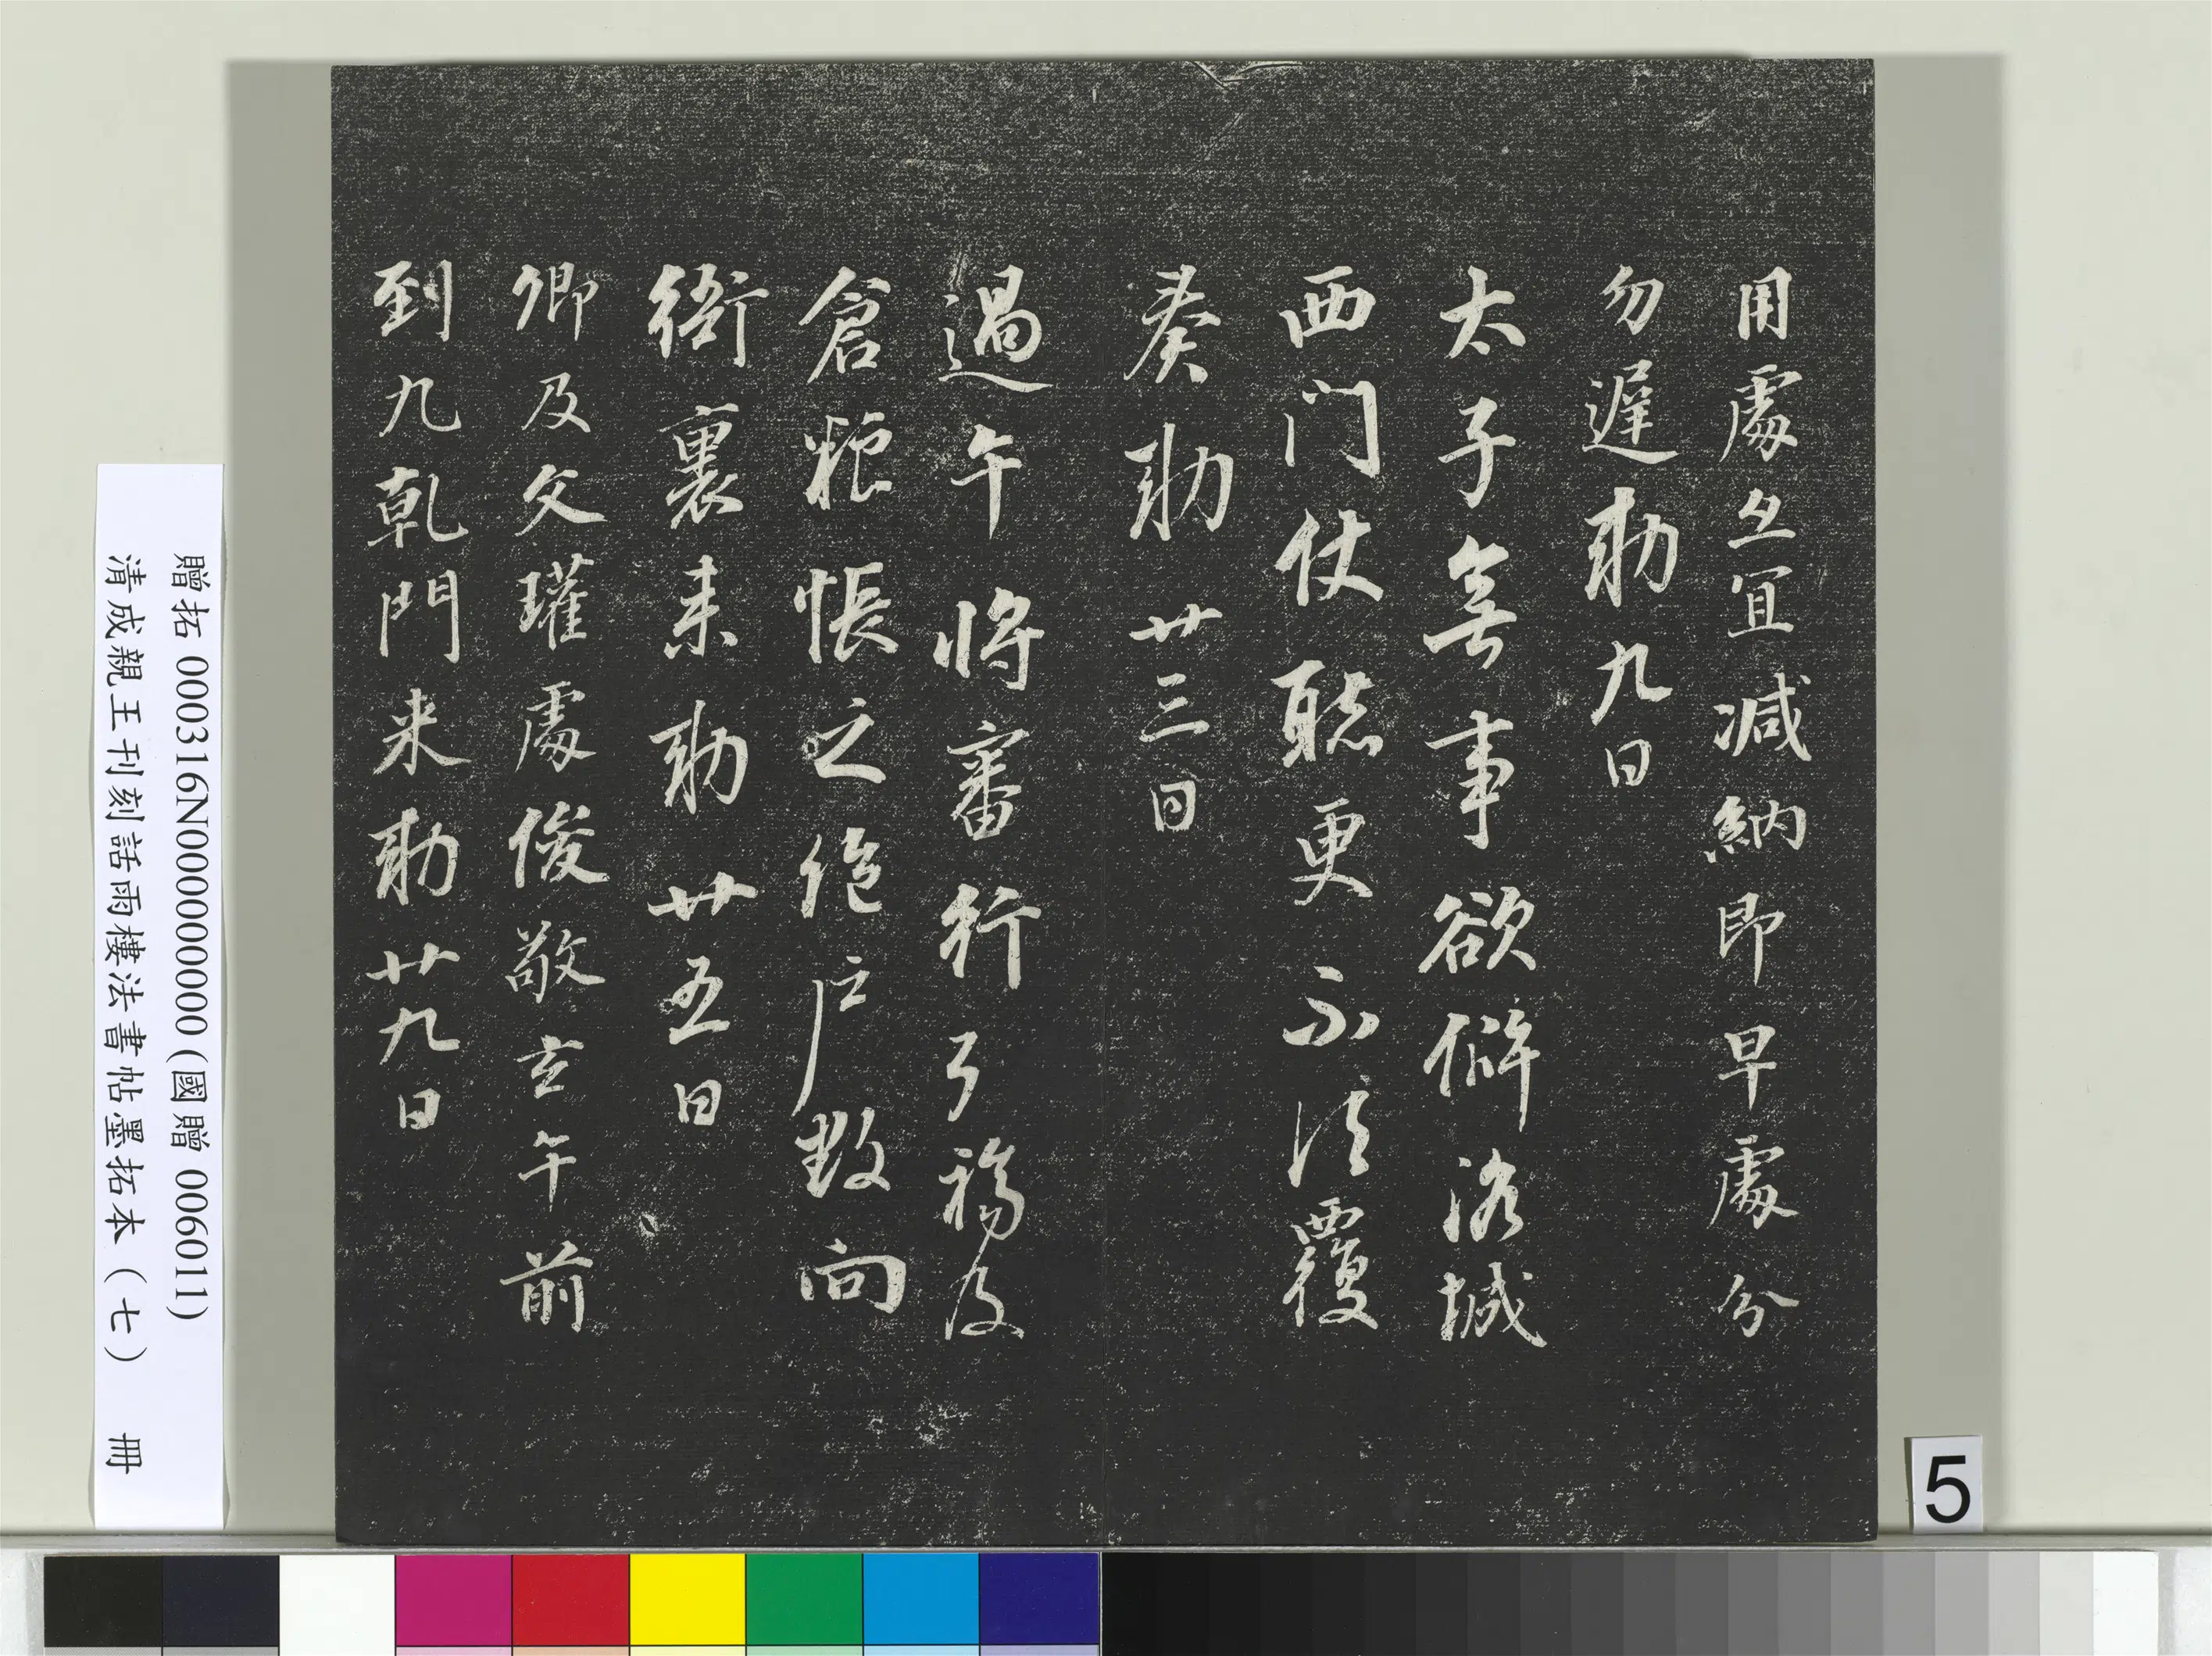 用處亦宜減納即早處分
勿遲勅九日
太子無事欲僻洛城
西门仗聽更不須覆
奏勅廿三日
過午將審行弓福及
倉粮帳之絁戶數向
衙裏来勅廿五日
卿及文瓘處俊敬玄午前
到九乾門来勅廿九日
贈拓 000316N000000000 (國贈 006011)
清成親王刊刻詒雨樓法書帖墨拓本（七） 冊
5